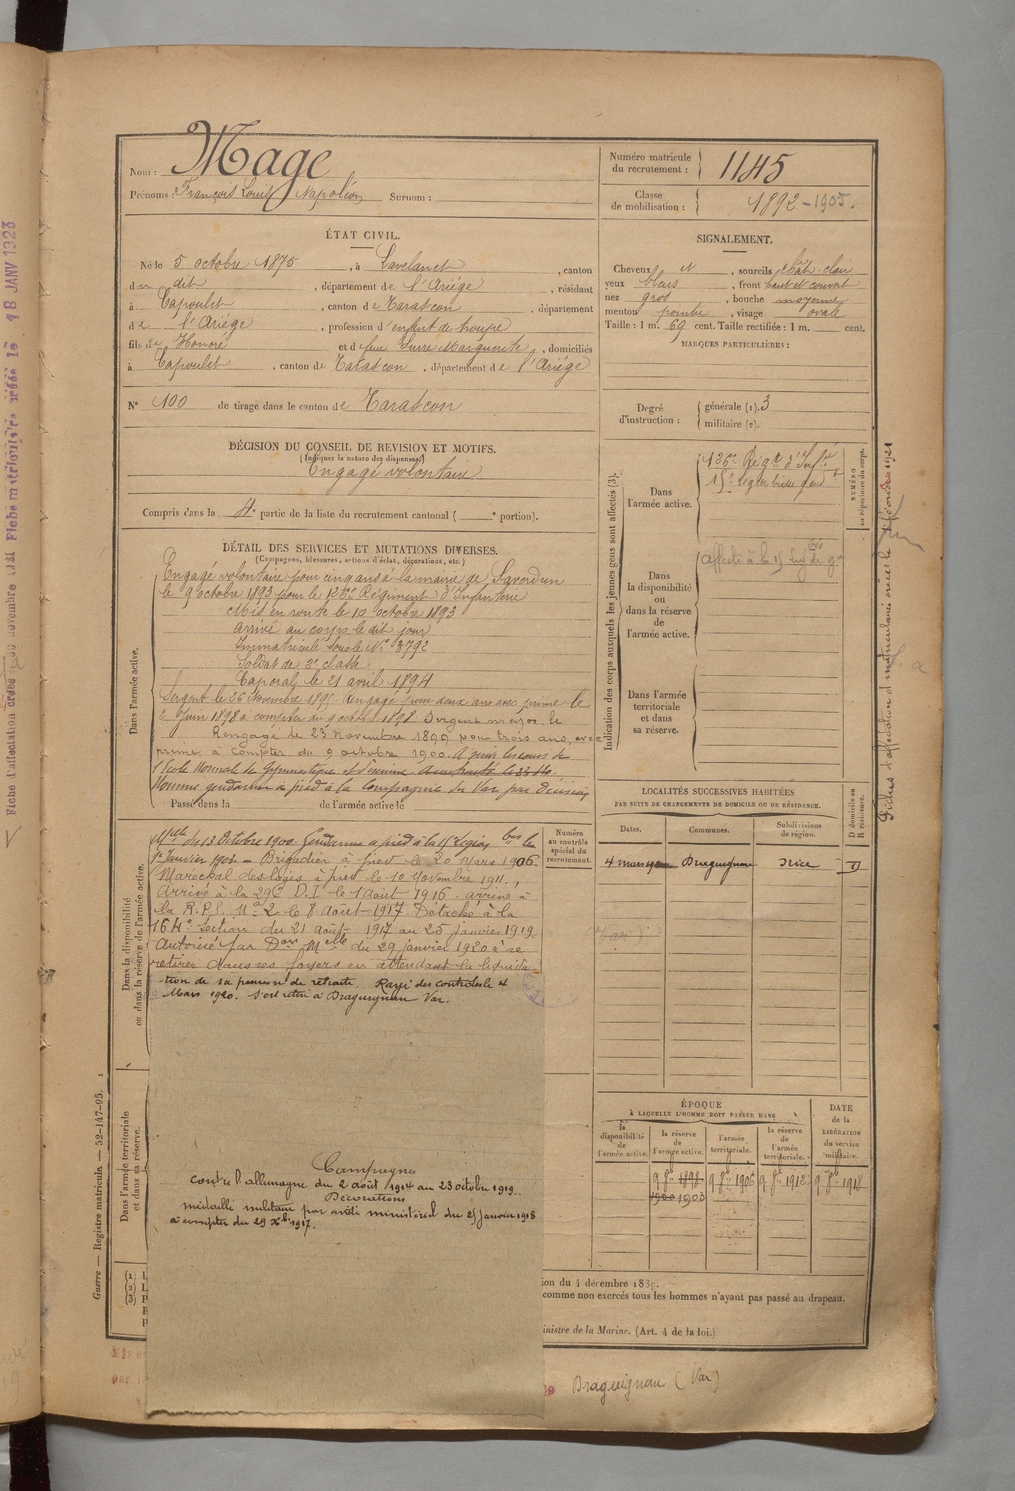 Nom : Mage
Prénoms : François Louis Napoléon Surnom :
Numéro matricule du recrutement : 1145
Classe de mobilisation : 1892 - 1905.
ÉTAT CIVIL.
Né le 5 octobre 1875, à Lavelanet, canton
du dit, département de l'Ariége, résidant
à Capoulet, canton de Tarascon, département
de l'Ariége, profession d'enfant de troupe
fils de Honoré et de feue Surre Marguerite, domiciliés
à Capoulet, canton de Tarascon, département de l'Ariége
N° 100 de tirage dans le canton de Tarascon
SIGNALEMENT.
Cheveux et, sourcils chât-clair
yeux bleus, front haut et couvert
nez gros, bouche moyenne
menton pointu, visage ovale
Taille : 1 m. 69 cent. Taille rectifiée : 1 m. cent.
MARQUES PARTICULIÈRES :
Degré d'instruction : générale (1). 3
militaire (2).
DÉCISION DU CONSEIL DE REVISION ET MOTIFS.
(Indiquer la nature des dispenses)
Engagé volontaire
Compris dans la 4e partie de la liste du recrutement cantonal ( e portion).
DÉTAIL DES SERVICES ET MUTATIONS DIVERSES.
(Campagnes, blessures, actions d'éclat, décorations, etc.)
Dans l'armée active.
Engagé volontaire pour cinq ans à la mairie de Saverdun
le 9 octobre 1893 pour le 126e Régiment d'Infanterie
Mis en route le 10 octobre 1893
arrivé au corps le dit jour
Immatriculé sous le N° 3792
Soldat de 2e classe
Caporal le 21 avril 1894
Sergent le 26 Novembre 1895 engagé pour deux ans avec prime le
2 Juin 1898 à compter du 9 octobre 1898 Sergent major le
Rengagé le 23 novembre 1899 pour trois ans, avec
prime à compter du 9 octobre 1900. A suivi les cours de
l'École Normale de Gymnastique et d'escrime
Nommé gendarme à pied à la Compagnie du Var par Décision
Passé dans la de l'armée active le
Dans la disponibilité ou dans la réserve de l'armée active.
Mlle du 13 Octobre 1900. Gendarme à pied à la 15e Légion bis le
1er Janvier 1902. Brigadier à pied le 20 Mars 1906.
Maréchal des logis à pied le 10 novembre 1911.,
Arrivé à la 29e D.I le 1 août 1916. arrivé à
la R.P.S. No 2 le 8 août 1917. Détaché à la
164e Section du 21 août 1917 au 25 janvier 1919.
Autorisé par Don Mlle du 29 janvier 1920 à se
retirer dans ses foyers en attendant la liquida-
tion de sa pension de retraite. Rayé des contrôles le 4
Mars 1920. S'est retiré à Draguignan Var.
Campagne
contre l'allemagne du 2 août 1914 au 23 octobre 1919.
Décorations
médaille militaire par arrêté ministériel du 25 janvier 1918
à compter du 29 Xbre 1917.
Dans l'armée territoriale et dans sa réserve.
Numéro au contrôle spécial du recrutement.
Indication des corps auxquels les jeunes gens sont affectés (3).
Dans l'armée active. 126e Régt d'Infie
15e Légion bis de gendie
NUMÉRO au répertoire du corps.
Dans la disponibilité ou dans la réserve de l'armée active. affecté à la 15 Leg bis de gie
Dans l'armée territoriale et dans sa réserve.
LOCALITÉS SUCCESSIVES HABITÉES
PAR SUITE DE CHANGEMENTS DE DOMICILE OU DE RÉSIDENCE.
Dates. Communes. Subdivisions de région. D domicile ou R résidence.
4 mars 1920 Draguignan Nice D
(Var)
ÉPOQUE
À LAQUELLE L'HOMME DOIT PASSER DANS
la disponibilité de l'armée active. la réserve de l'armée active. l'armée territoriale. la réserve de l'armée territoriale. DATE de la LIBÉRATION du service militaire.
9 8bre 1898 9 8bre 1906 9 8bre 1912 9 8bre 1918
1900 1903
ion du 4 décembre 1889.
comme non exercés tous les hommes n'ayant pas passé au drapeau.
inistre de la Marine. (Art. 4 de la loi.)
Draguignan (Var)
Guerre — Registre matricule. — 52-147-95.
(1)
(2)
(3)